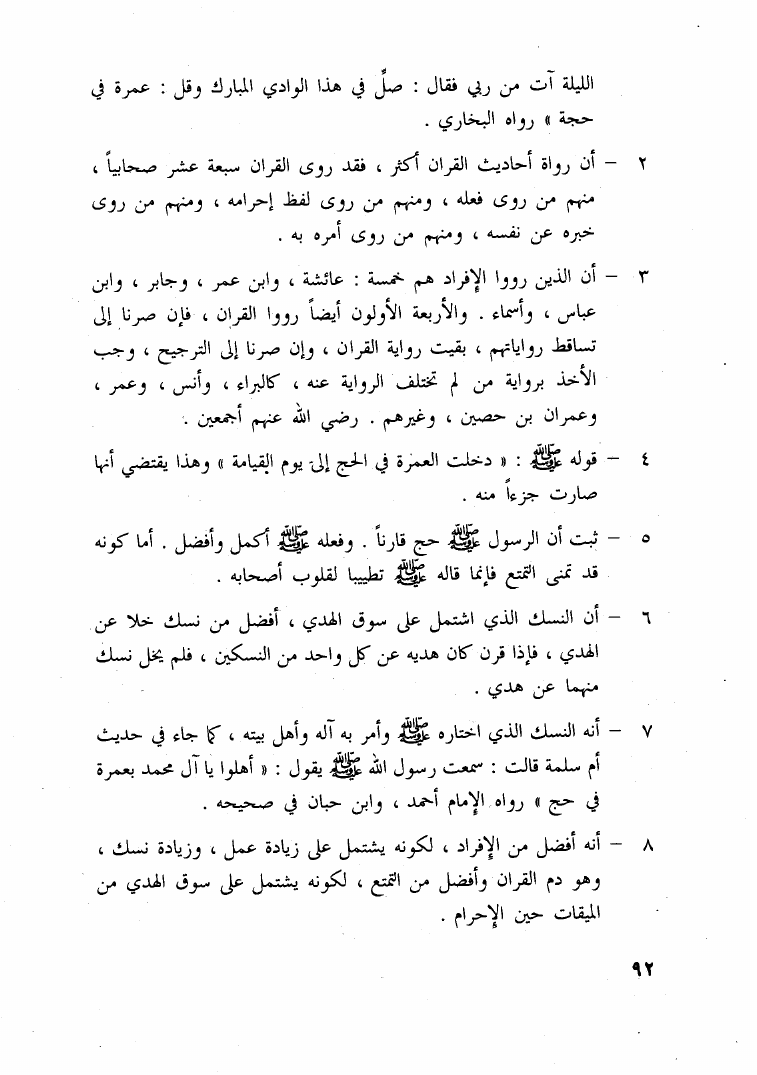 الليلة آت من ربي فقال : صلِّ في هذا الوادي المبارك وقل : عمرة في
حجة » رواه البخاري .
٢ – أن رواة أحاديث القران أكثر ، فقد روى القران سبعة عشر صحابياً ،
منهم من روى فعله ، ومنهم من روى لفظ إحرامه ، ومنهم من روى
خبره عن نفسه ، ومنهم من روى أمره به .
٣ – أن الذين رووا الإفراد هم خمسة : عائشة ، وابن عمر ، وجابر ، وابن
عباس ، وأسماء . والأربعة الأولون أيضاً رووا القران ، فإن صرنا إلى
تساقط رواياتهم ، بقيت رواية القران ، وإن صرنا إلى الترجيح ، وجب
الأخذ برواية من لم تختلف الرواية عنه ، كالبراء ، وأنس ، وعمر ،
وعمران بن حصين ، وغيرهم . رضي الله عنهم أجمعين .
٤ – قوله ﷺ : « دخلت العمرة في الحج إلى يوم القيامة » وهذا يقتضي أنها
صارت جزءاً منه .
٥ – ثبت أن الرسول ﷺ حج قارناً . وفعله ﷺ أكمل وأفضل . أما كونه
قد تمنى التمتع فإنما قاله ﷺ تطييبا لقلوب أصحابه .
٦ – أن النسك الذي اشتمل على سوق الهدي ، أفضل من نسك خلا عن
الهدي ، فإذا قرن كان هديه عن كل واحد من النسكين ، فلم يخل نسك
منهما عن هدي .
٧ – أنه النسك الذي اختاره ﷺ وأمر به آله وأهل بيته ، كما جاء في حديث
أم سلمة قالت : سمعت رسول الله ﷺ يقول : « أهلوا يا آل محمد بعمرة
في حج » رواه الإمام أحمد ، وابن حبان في صحيحه .
٨ – أنه أفضل من الإفراد ، لكونه يشتمل على زيادة عمل ، وزيادة نسك ،
وهو دم القران وأفضل من التمتع ، لكونه يشتمل على سوق الهدي من
الميقات حين الإحرام .
٩٢